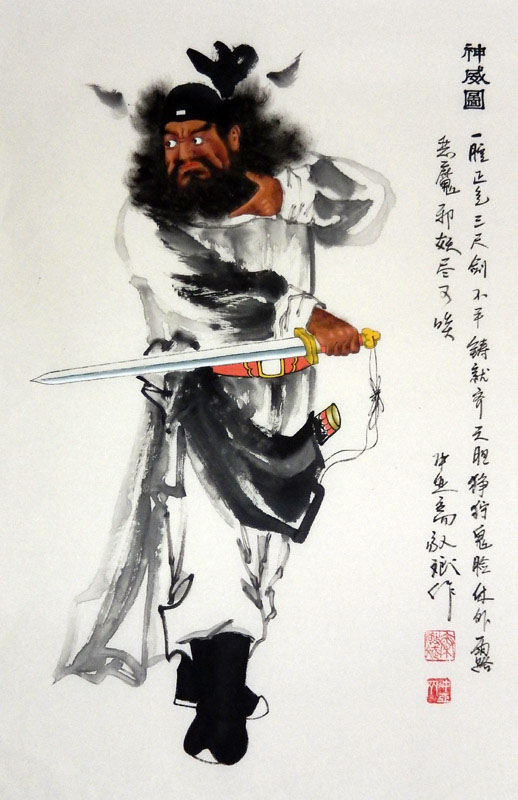 神威圖
一腔正气三尺剑不平铸就齐天胆狰狞鬼脸休外露
恶魔邪妖尽可
作